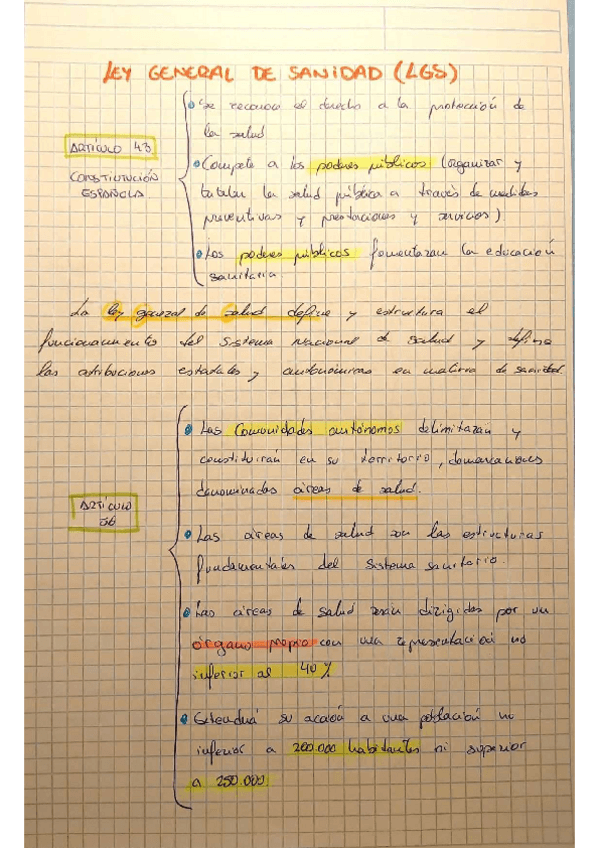 LEY GENERAL DE SANIDAD (LGS)
ARTÍCULO 43
CONSTITUCIÓN
ESPAÑOLA
• Se reconoce el derecho a la protección de
la salud
• Compete a los poderes públicos (organizar y
tutelar la salud pública a través de medidas
preventivas y prestaciones y servicios)
• Los poderes públicos fomentaran la educación
sanitaria.
La ley general de salud define y estructura el
funcionamiento del Sistema Nacional de Salud y define
las atribuciones estatales y autonómicas en materia de sanidad.
ARTÍCULO
56
• Las Comunidades autónomas delimitarán y
constituirán en su territorio, demarcaciones
denominadas áreas de salud.
• Las áreas de salud son las estructuras
fundamentales del sistema sanitario.
• Las áreas de salud serán dirigidas por un
órgano propio con una representación no
inferior al 40%
• Extenderá su acción a una población no
inferior a 200.000 habitantes ni superior
a 250.000.